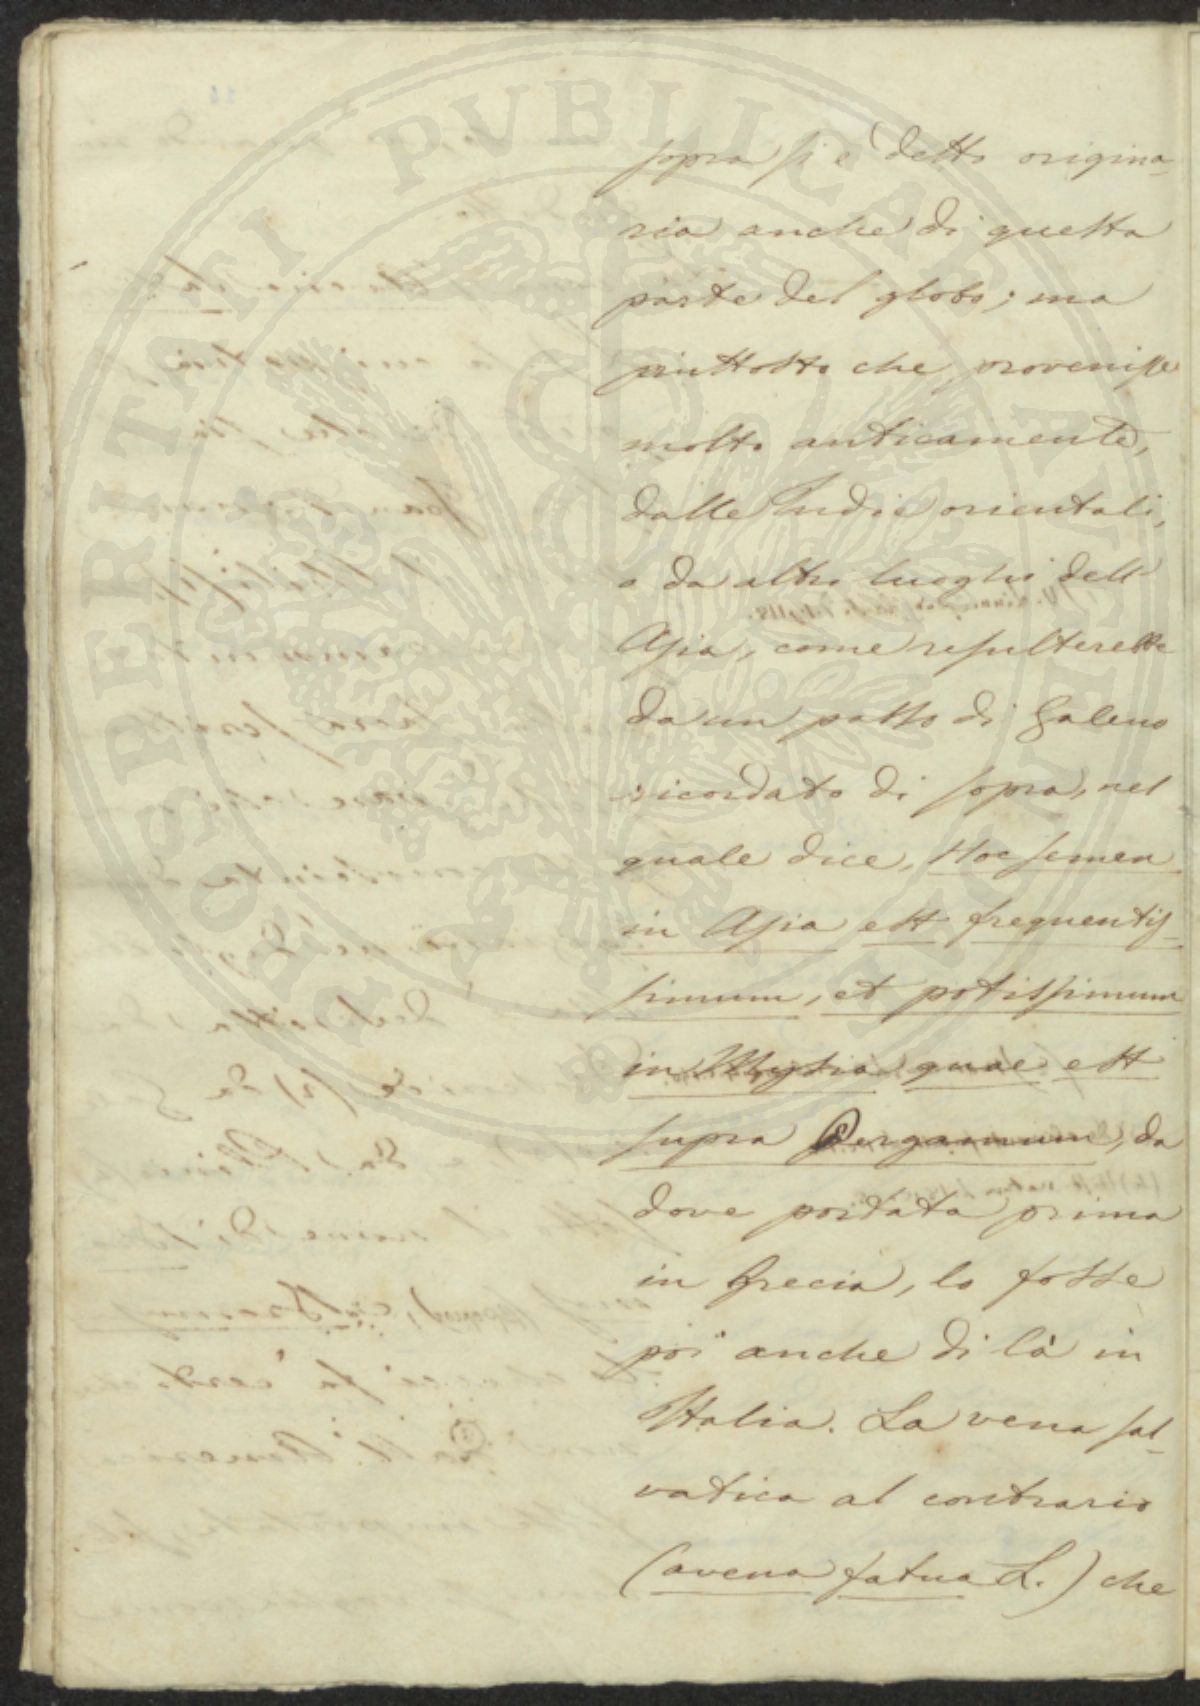 PROSPERITATI PVBLICAE AVGENDAE
sopra si è detto origina-
ria anche di questa
parte del globo; ma
piuttosto che provenisse
molto anticamente,
dalle Indie orientali,
o da altri luoghi dell'
Asia, come resulterebbe
da un passo di Galeno
ricordato di sopra, nel
quale dice, Hoc semen
in Asia est frequentis-
simum, et potissimum
in Mysia quae est
supra Pergamum, da
dove portata prima
in Grecia, lo fosse
poi anche di là in
Italia. La vena sal-
vatica al contrario
(avena fatua L.) che